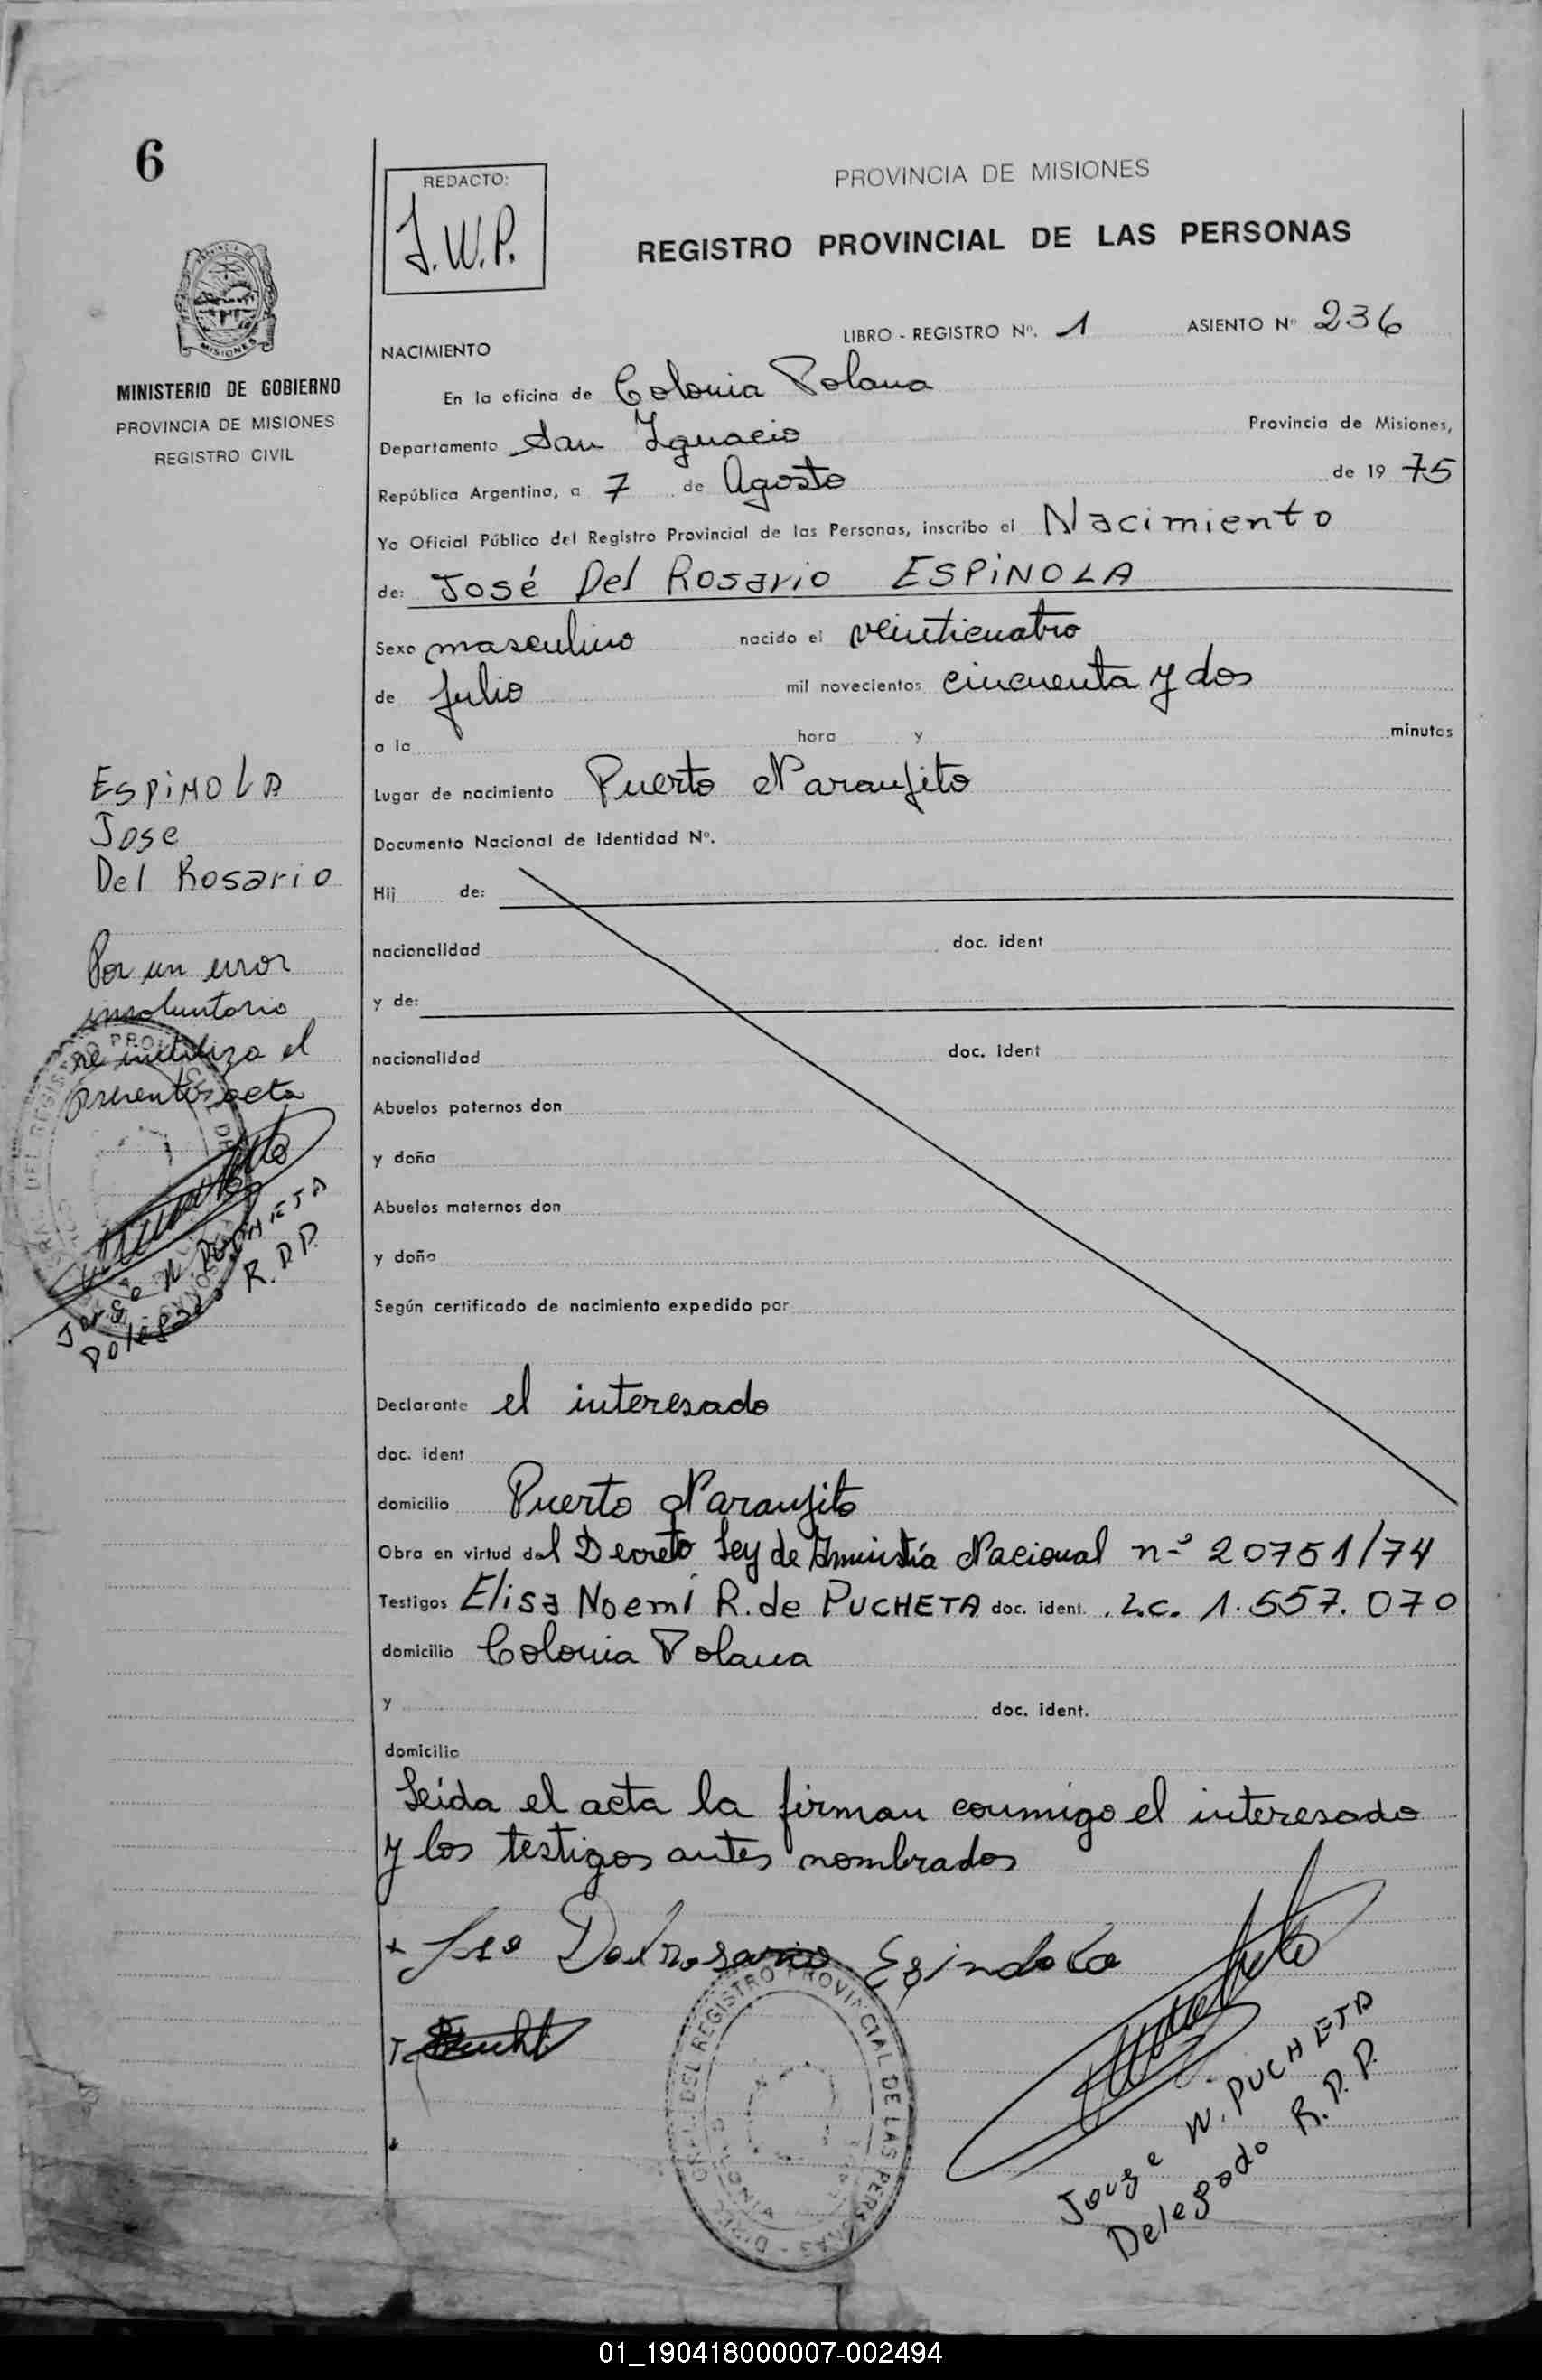 6
REDACTO:
J.W.P.
PROVINCIA DE MISIONES
REGISTRO PROVINCIAL DE LAS PERSONAS
MISIONES
MINISTERIO DE GOBIERNO
PROVINCIA DE MISIONES
REGISTRO CIVIL
LIBRO - REGISTRO Nº. 1 ASIENTO Nº 236
NACIMIENTO
En la oficina de Colonia Polana
Departamento San Ignacio Provincia de Misiones,
República Argentina, a 7 de Agosto de 19 75
Yo Oficial Público del Registro Provincial de las Personas, inscribo el Nacimiento
de: José Del Rosario ESPINOLA
Sexo masculino nacido el veinticuatro
de Julio mil novecientos cincuenta y dos
a la hora y minutos
Lugar de nacimiento Puerto Naranjito
Documento Nacional de Identidad Nº.
Hij de:
nacionalidad doc. ident
y de:
nacionalidad doc. ident
Abuelos paternos don
y doña
Abuelos maternos don
y doña
Según certificado de nacimiento expedido por
Declarante el interesado
doc. ident
domicilio Puerto Naranjito
Obra en virtud del Decreto Ley de Amnistía Nacional nº 20751/74
Testigos Elisa Noemí R. de PUCHETA doc. ident. L.C. 1.557.070
domicilio Colonia Polana
y doc. ident.
domicilio
Leída el acta la firman conmigo el interesado
y los testigos antes nombrados
Jose Del rosario Espindola
Jorge W. PUCHETA
Delegado R.P.P.
ESPINOLA
Jose
Del Rosario
Por un error
involuntario
se inutiliza el
presente acta
Jorge W. PUCHETA
Delegado R.P.P.
REGISTRO PROVINCIAL DE LAS PERSONAS
01_190418000007-002494